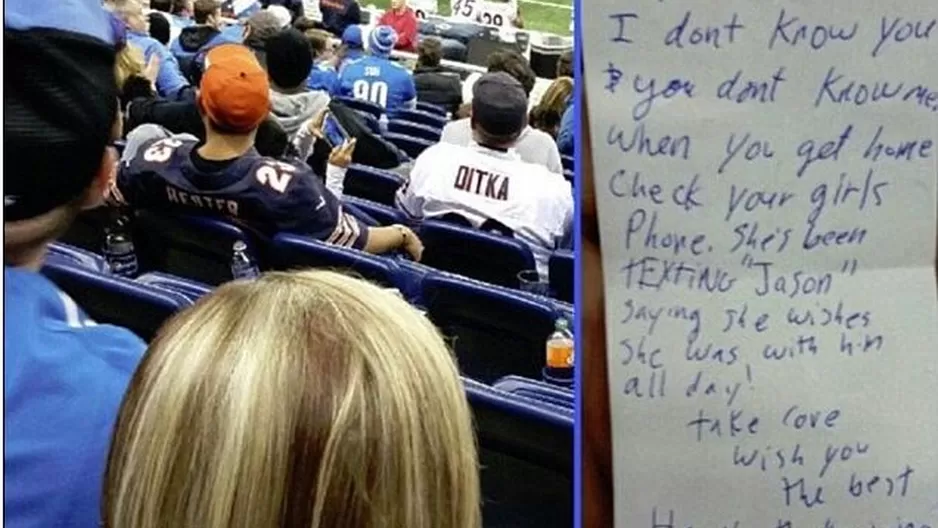 45
29
SUH
90
23
HESTER
DITKA
I dont know you
& you dont know me,
when you get home
Check your girls
Phone. She's been
TEXTING "Jason"
saying she wishes
She was with him
all day!
take care
wish you
the best